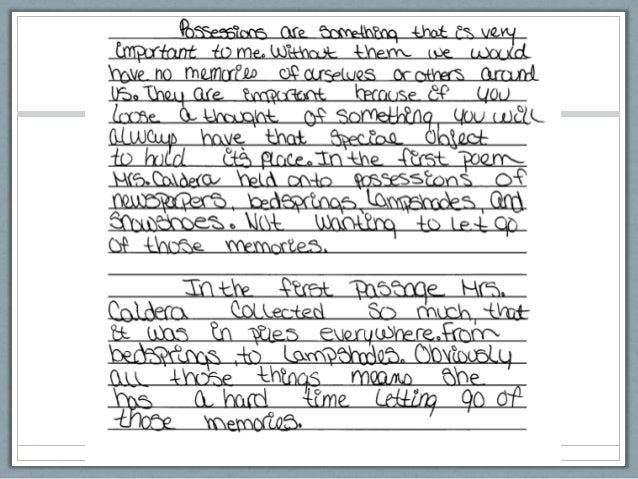 Possessions are something that is very
important to me. Without them we would
have no memories of ourselves or others around
us. They are important because if you
loose a thought of something, you will
always have that special object
to hold its place. In the first poem
Mrs. Caldera held onto possessions of
newspapers, bedsprings, lampshades, and
snowshoes. Not wanting to let go
of those memories.
In the first passage Mrs.
Caldera collected so much, that
it was in piles everywhere. From
bedsprings, to lampshades. Obviously
all those things means she
has a hard time letting go of
those memories.